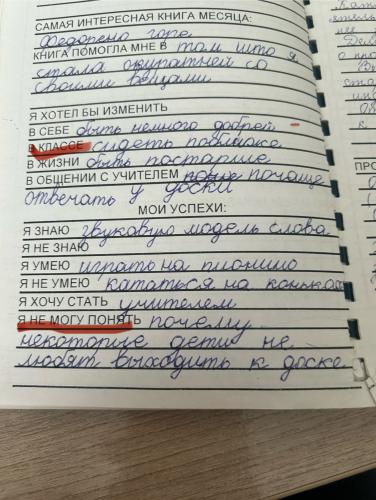 САМАЯ ИНТЕРЕСНАЯ КНИГА МЕСЯЦА:
Федорено горе
КНИГА ПОМОГЛА МНЕ В том што я
стала окуратней со
своими вещами
Я ХОТЕЛ БЫ ИЗМЕНИТЬ
В СЕБЕ быть немного добрей
В КЛАССЕ сидеть поближе
В ЖИЗНИ быть постарше
В ОБЩЕНИИ С УЧИТЕЛЕМ почаще
отвечать у доски
МОИ УСПЕХИ:
Я ЗНАЮ звуковую модель слова
Я НЕ ЗНАЮ
Я УМЕЮ играть на пионино
Я НЕ УМЕЮ кататься на коньках
Я ХОЧУ СТАТЬ учителем
Я НЕ МОГУ ПОНЯТЬ почему
некоторые дети не
любят выходить к доске